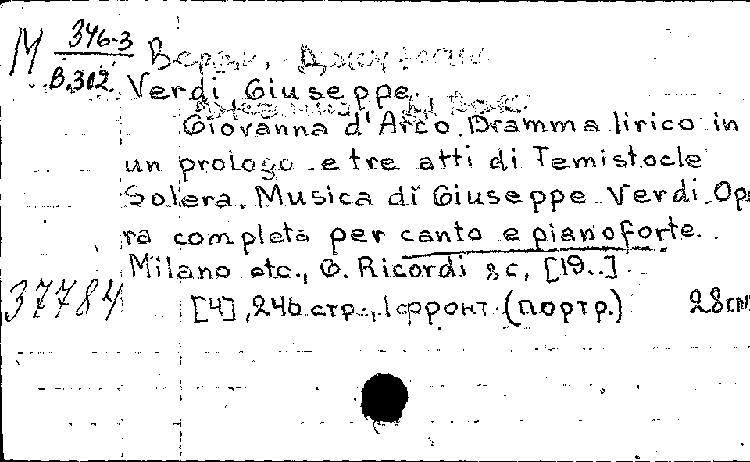 М 346-3
В.302
Верди, Джузеппе
Verdi Giuseppe.
Giovanna d'Arco. Dramma lirico in
un prologo e tre atti di Temistocle
Solera. Musica di Giuseppe Verdi. Ope
ra completa per canto e pianoforte.
Milano etc., G. Ricordi & C, [19..]
37784
[4], 246 стр., 1 фронт. (портр.) 28 см